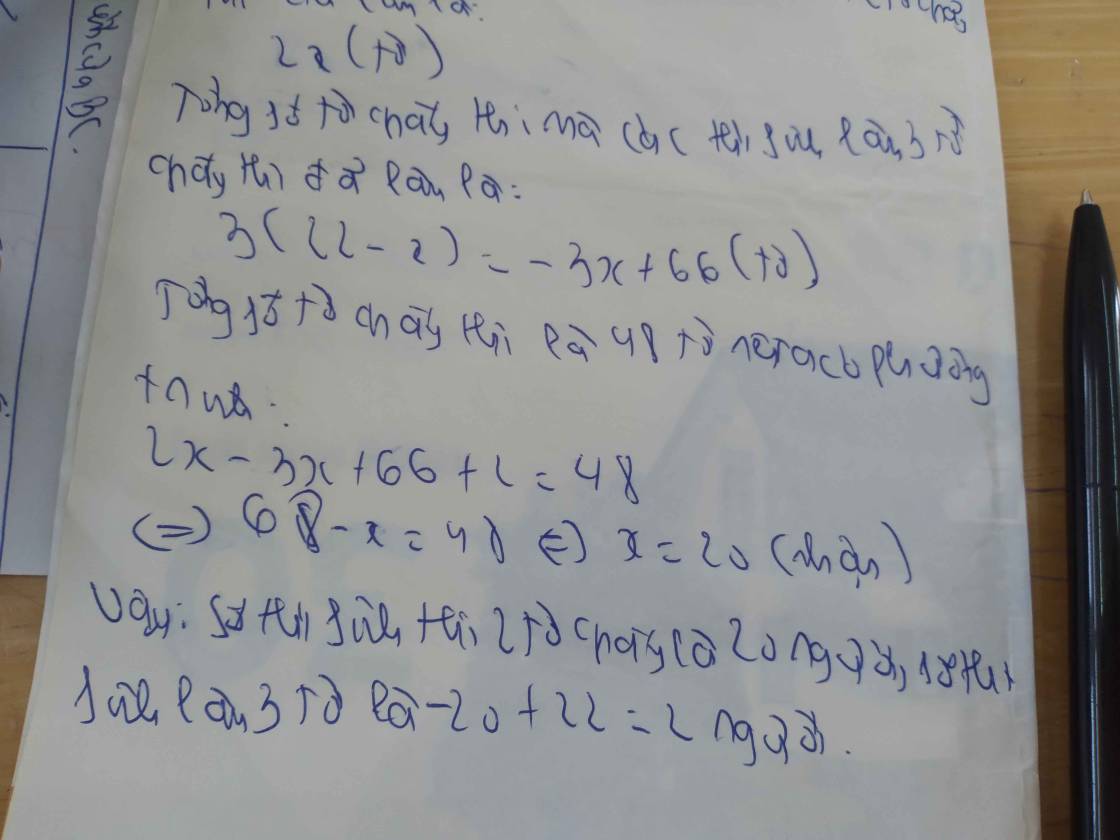 2x (tờ)
Tổng số tờ giấy thi mà các thí sinh làm 3 tờ
giấy thi đã làm là:
3(22 - x) = -3x + 66 (tờ)
Tổng số tờ giấy thi là 48 tờ nên ta có phương
trình:
2x - 3x + 66 + 2 = 48
(=) 68 - x = 48 (=) x = 20 (nhận)
Vậy: Số thí sinh thi 2 tờ giấy là 20 người, số thí
sinh làm 3 tờ là -20 + 22 = 2 người.